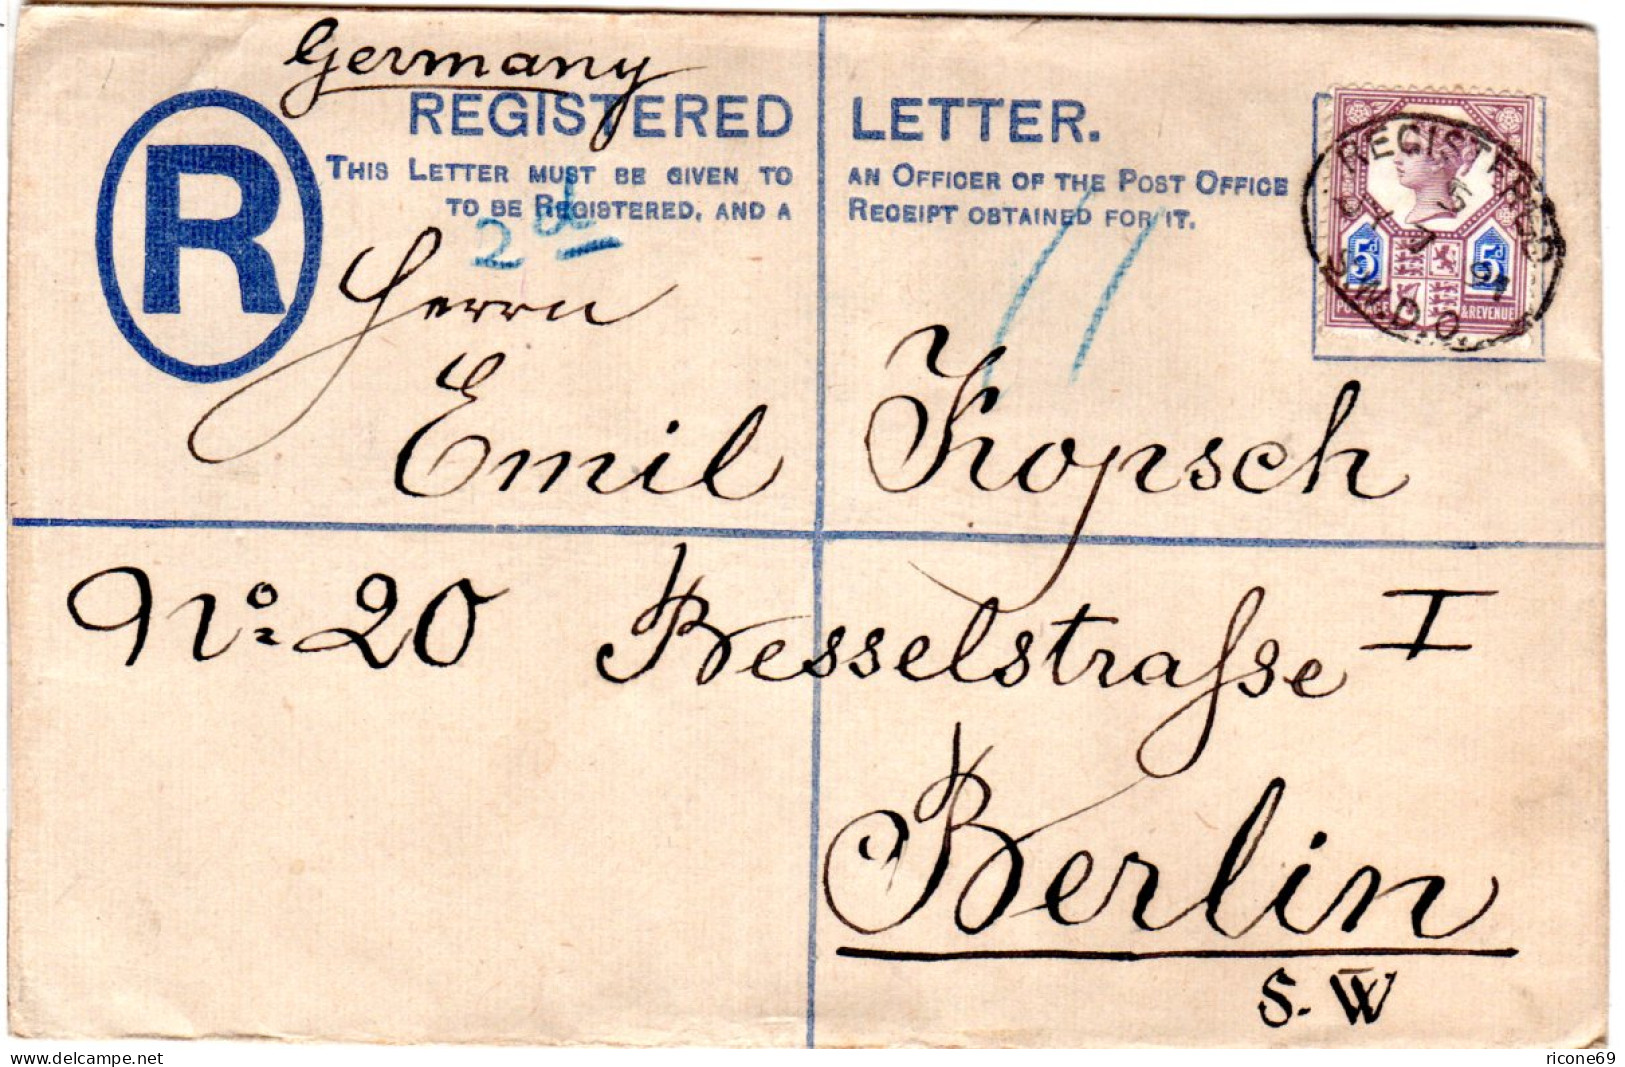 Germany
REGISTERED LETTER.
THIS LETTER MUST BE GIVEN TO AN OFFICER OF THE POST OFFICE
TO BE REGISTERED, AND A RECEIPT OBTAINED FOR IT.
R
2d
REGISTERED
S.W.D.O.
5d 5d
& REVENUE
Herrn
Emil Kopsch
No. 20 Besselstrasse I
Berlin
S. W
www.delcampe.net
ricone69